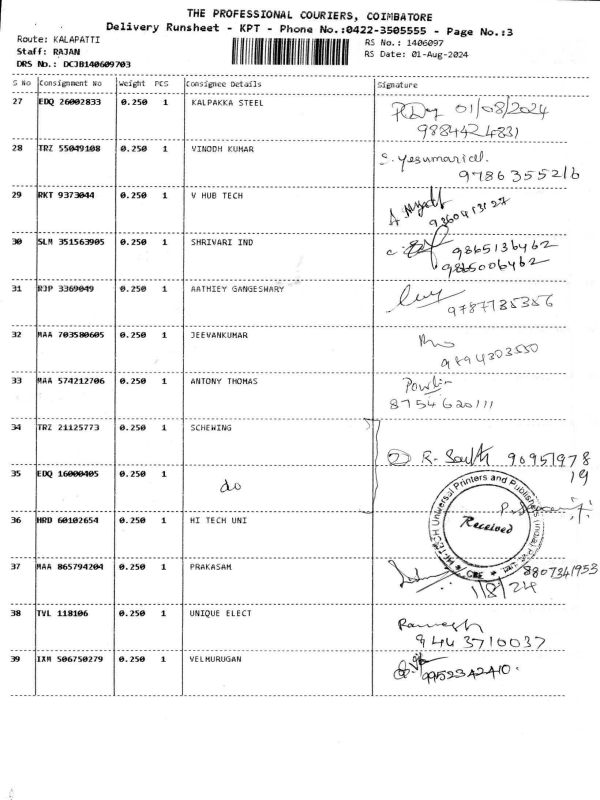 THE PROFESSIONAL COURIERS, COIMBATORE
Delivery Runsheet - KPT - Phone No.:0422-3505555 - Page No.:3
Route: KALAPATTI
RS No.: 1406097
Staff: RAJAN
RS Date: 01-Aug-2024
DRS No.: DCJB140609703
S No Consignment No Weight PCS Consignee Details Signature
27 EDQ 26002833 0.250 1 KALPAKKA STEEL 01/08/2024
9884424831
28 TRZ 55049108 0.250 1 VINODH KUMAR S. Yesumarial.
9786355216
29 RKT 9373044 0.250 1 V HUB TECH
9360413127
30 SLM 351563905 0.250 1 SHRIVARI IND 9865136462
9865006462
31 RJP 3369049 0.250 1 AATHIEY GANGESHWARY
9787735356
32 MAA 703580605 0.250 1 JEEVANKUMAR
9894303550
33 MAA 574212706 0.250 1 ANTONY THOMAS
8754620111
34 TRZ 21125773 0.250 1 SCHEWING
② R. 90951978
19
35 EDQ 16000405 0.250 1 do
36 HRD 60102654 0.250 1 HI TECH UNI
HI-TECH Universal Printers and Publishers (India) Pvt. Ltd. * CBE *
Received
37 MAA 865794204 0.250 1 PRAKASAM 8807341953
1/8/24
38 TVL 118106 0.250 1 UNIQUE ELECT Ramesh
9443710037
39 IXM 506750279 0.250 1 VELMURUGAN
9952342410.